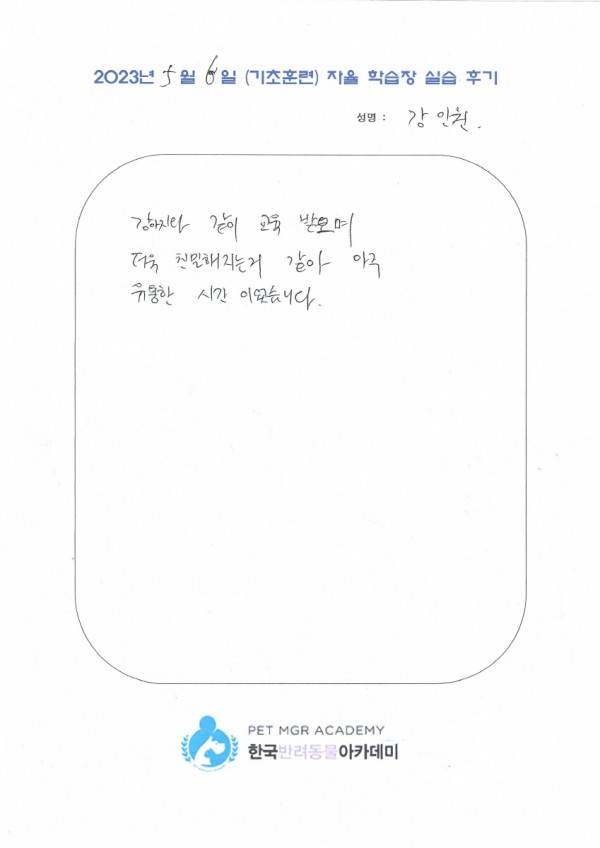 2023년 5월 6일 (기초훈련) 자율 학습장 실습 후기
성명 : 강인원.
강아지와 같이 교육 받으며
더욱 친밀해지는거 같아 아주
유통한 시간 이였습니다.
PET MGR ACADEMY
한국반려동물아카데미